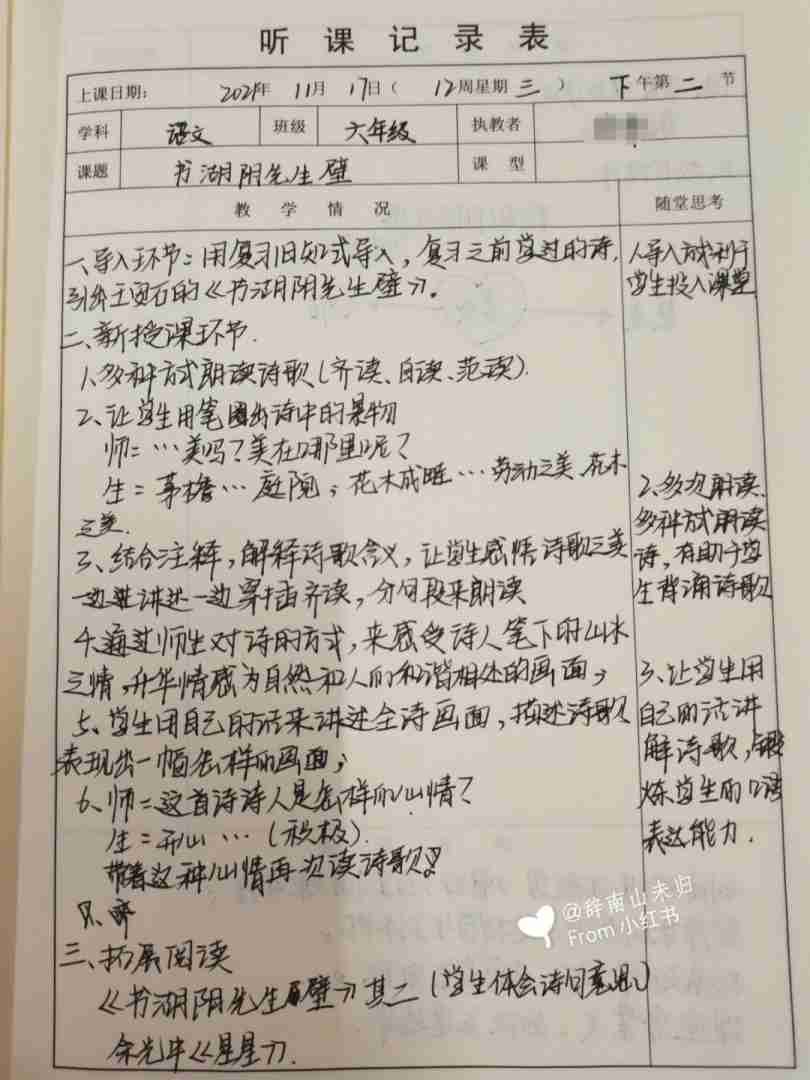 听课记录表
上课日期: 2021年 11月 17日( 12周星期 三 ) 下午第 二 节
学科 语文 班级 六年级 执教者
课题 书湖阴先生壁 课型
教学情况 随堂思考
一、导入环节:用复习旧知式导入,复习之前学过的诗,
引出王安石的《书湖阴先生壁》。
1、导入方式利于
学生投入课堂
二、新授课环节.
1、多种方式朗读诗歌(齐读、自读、范读).
2、让学生用笔圈出诗中的景物
师:…美吗?美在哪里呢?
生:茅檐…庭院;花木成畦…劳动之美、花木
之美.
2、多次朗读、
多种方式朗读
诗,有助于学
生背诵诗歌
3、结合注释,解释诗歌含义,让学生感悟诗歌之美
一边讲述一边穿插齐读,分句段来朗读
4、通过师生对诗的方式,来感受诗人笔下的山水
之情,升华情感为自然和人们和谐相处的画面;
5、学生用自己的话来讲述全诗画面,描述诗歌
表现出一幅怎样的画面;
3、让学生用
自己的话讲
解诗歌,锻
炼学生的口语
表达能力.
6、师:这首诗诗人是怎样的心情?
生:开心…(积极).
带着这种心情再次读诗歌
三、拓展阅读
《书湖阴先生壁》其二(学生体会诗句意思)
余光中《星星》.
@辞南山未归
From 小红书